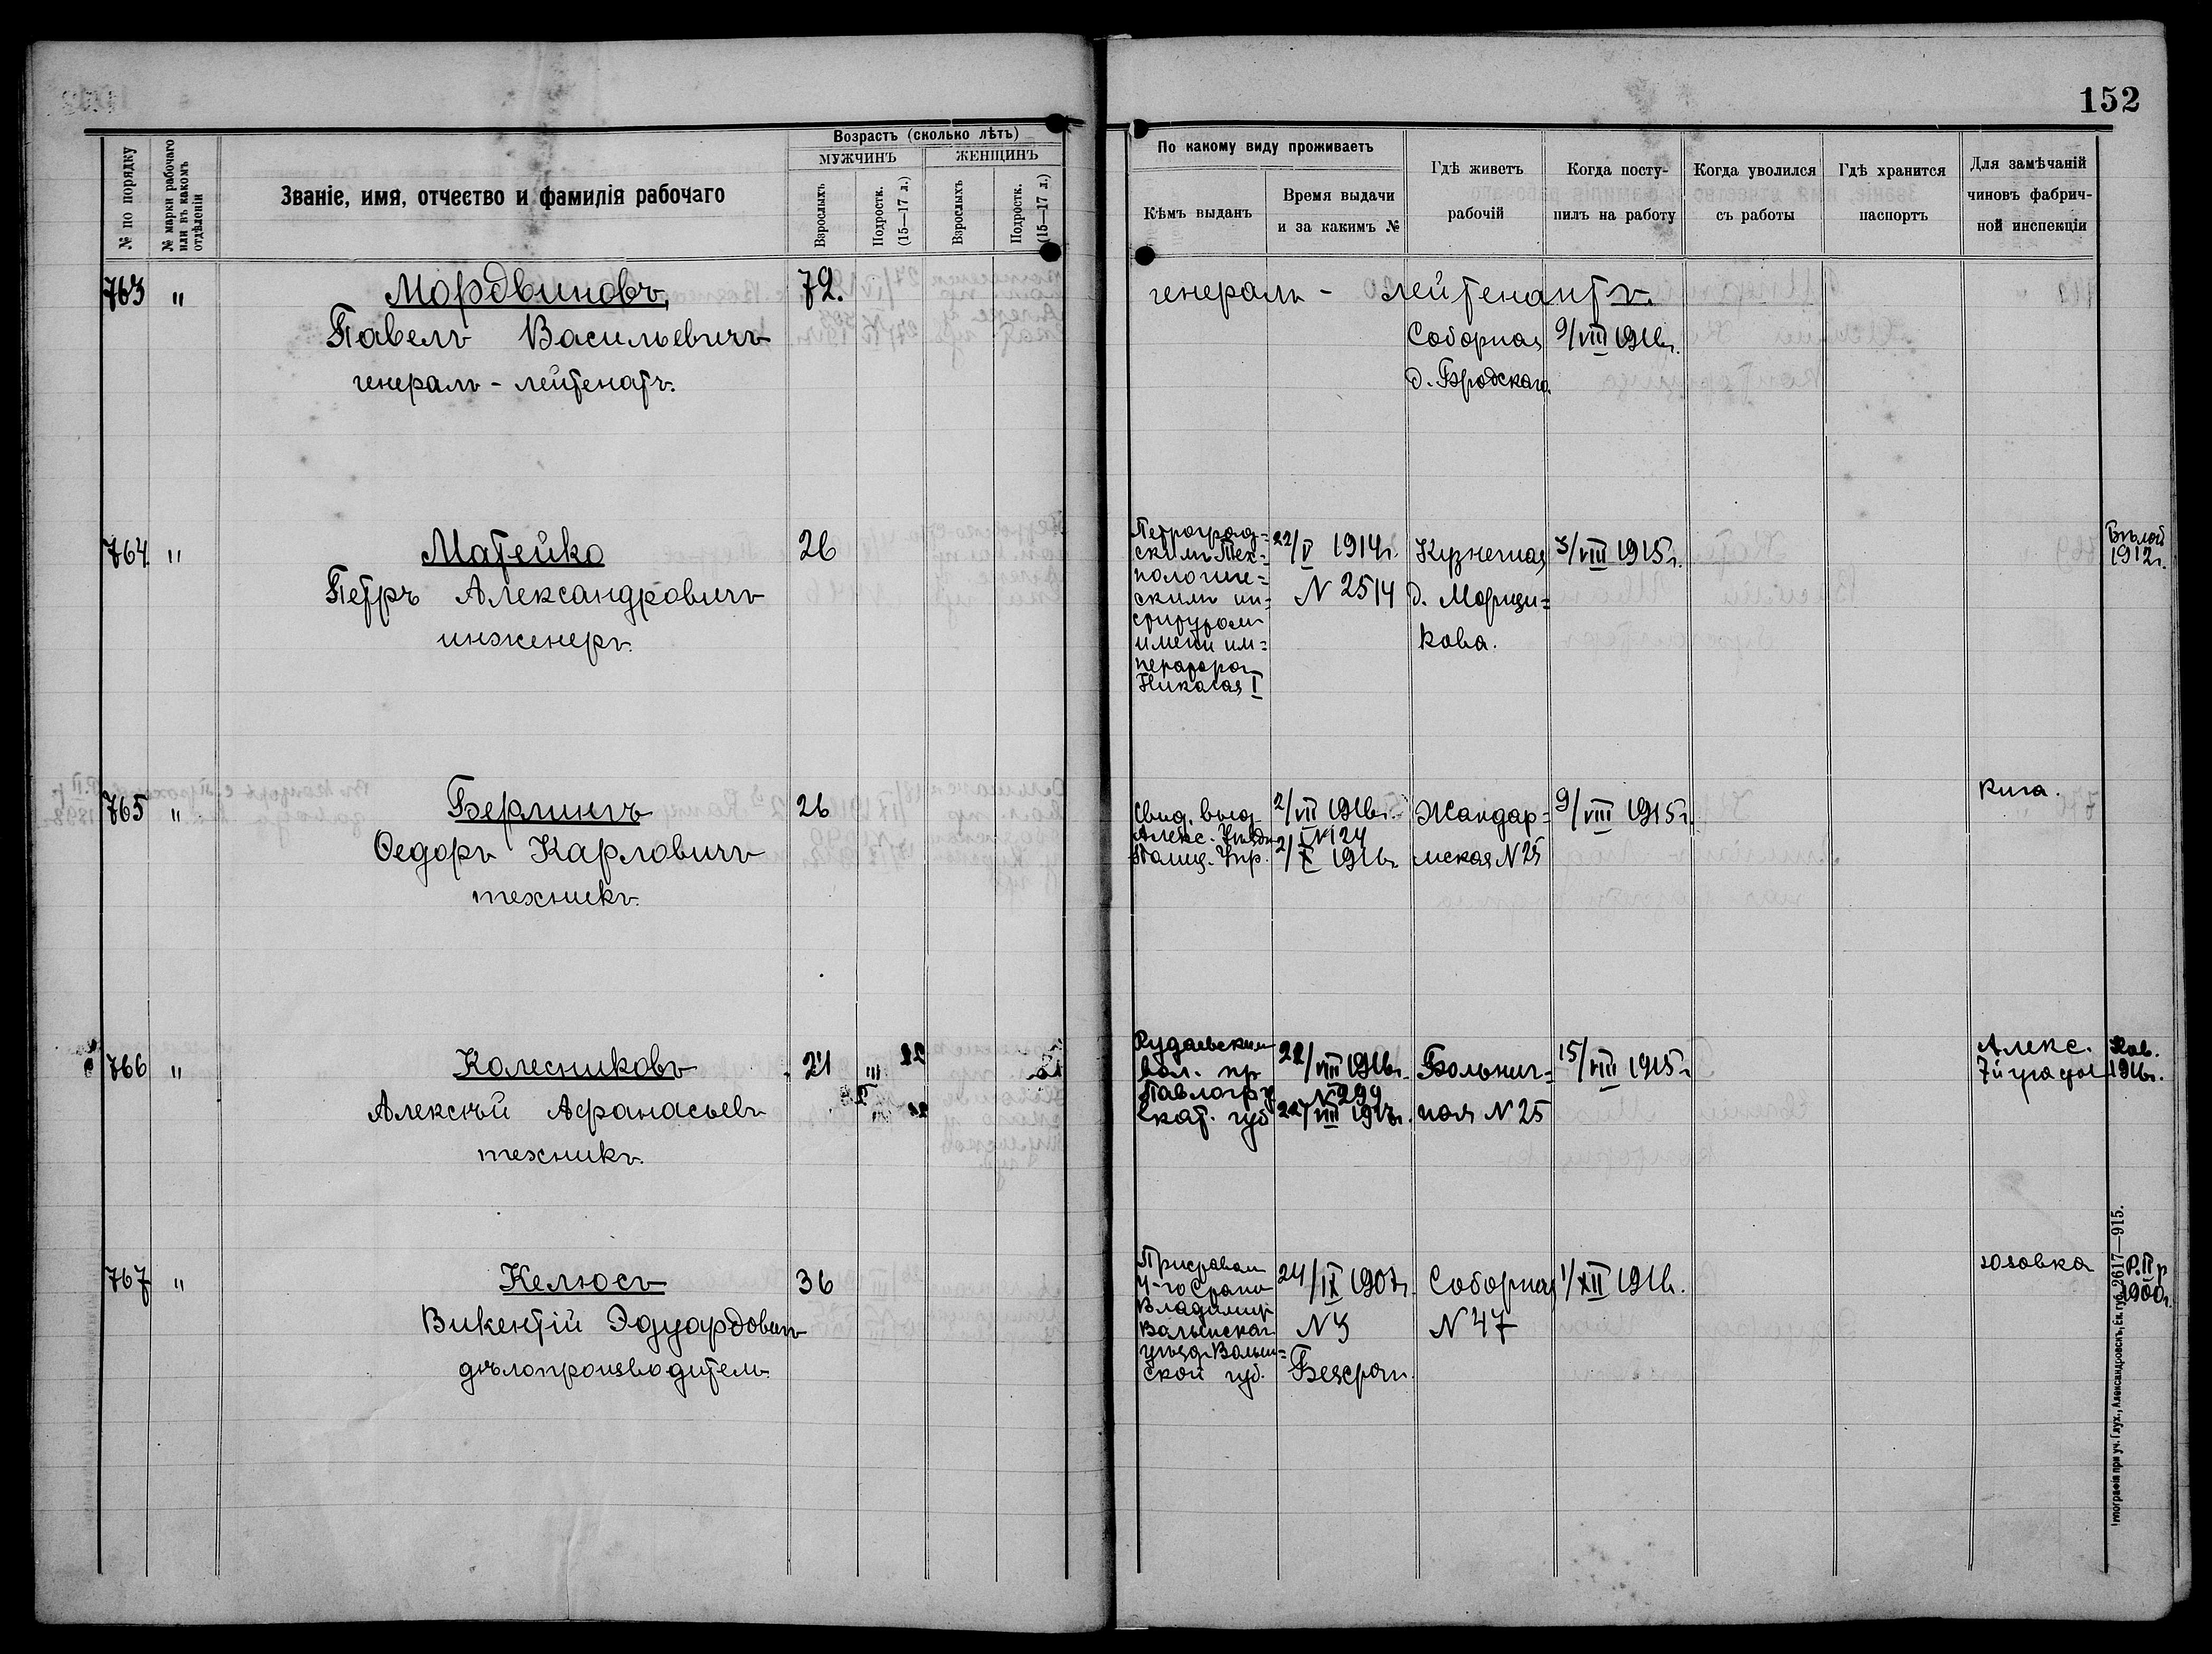 152
№ по порядку
№ марки рабочаго или въ какомъ отдѣленіи
Званіе, имя, отчество и фамилія рабочаго
Возрастъ (сколько лѣтъ)
МУЖЧИНЪ
ЖЕНЩИНЪ
Взрослыхъ
Подростк. (15—17 л.)
Взрослыхъ
Подростк. (15—17 л.)
По какому виду проживаетъ
Кѣмъ выданъ
Время выдачи
и за какимъ №
Гдѣ живетъ
рабочій
Когда посту-
пилъ на работу
Когда уволился
съ работы
Гдѣ хранится
паспортъ
Для замѣчаній
чиновъ фабрич-
ной инспекціи
763 " Мордвиновъ, 72. генералъ - лейтенантъ.
Павелъ Васильевичъ Соборная 9/VIII 1916г.
генералъ - лейтенатъ. д. Бродскаго.
764 " Матейко 26
Петръ Александровичъ
инженеръ.
Петроград=
скимъ Тех=
нологиче=
скимъ ин=
ститутом
имени им=
ператора
Николая I
22/V 1914г.
N 2514
Кузнечная
д. Морщи=
кова.
3/VIII 1915г.
Бѣлой
1912г.
765 " Берлинъ 26
Ѳедоръ Карловичъ
техникъ.
Свид. выд.
Алекс. Уѣздн
Полиц. Упр.
2/VII 1916г.
N 124
2/X 1916г.
Жандар=
мская N 25
9/VIII 1915г.
Рига.
766 " Колесниковъ 24
Алексѣй Афанасьевъ
техникъ.
вол. пр
Павлогр у
Екат. губ
22/VIII 1916г.
N 299
22/VIII 1917г.
Больнич=
ная N 25
15/VIII 1915г.
Алекс.
7й участ
1916г.
767 " Келюсъ 36
Викентій Эдуардович
дѣлопроизводитель.
Приставом
4-го Стана
Владимир
Волынскаг
уѣзд. Волын=
ской губ.
24/IX 1907г.
N 3
Безсроч.
Соборная
N 47
1/XII 1916.
Юзовка
Р. II р
1900г.
Типографія при уч. Глух., Александровскъ, Ек. губ. 2617—915.